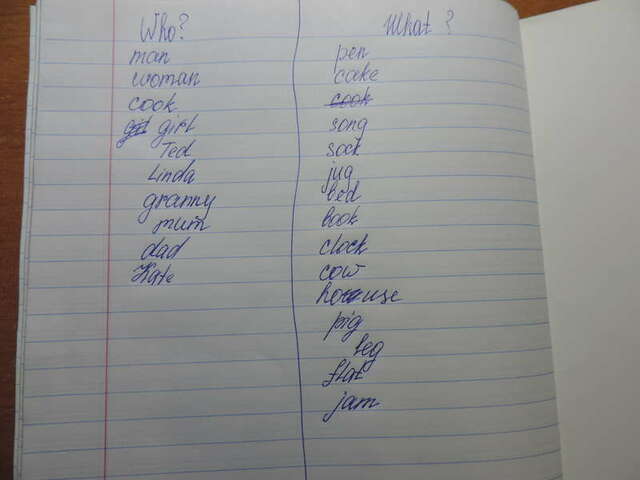 Who?
man
woman
cook
girl
Ted
Linda
granny
mum
dad
Kate
What?
pen
cake
cook
song
sock
jug
bed
book
clock
cow
house
pig
leg
flat
jam